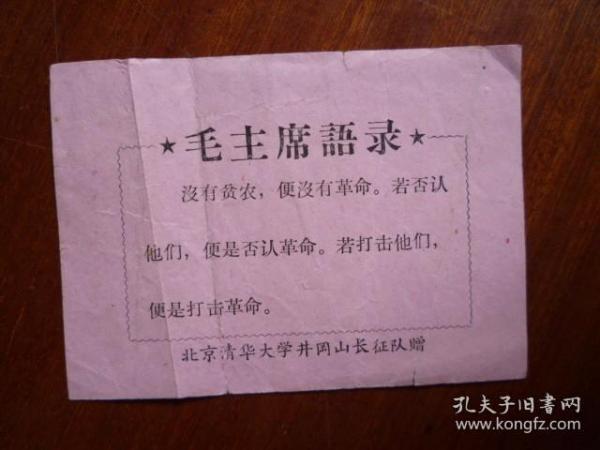 ★毛主席語录★
沒有贫农，便沒有革命。若否认
他们，便是否认革命。若打击他们，
便是打击革命。
北京清华大学井冈山长征队赠
孔夫子旧書网
www.kongfz.com